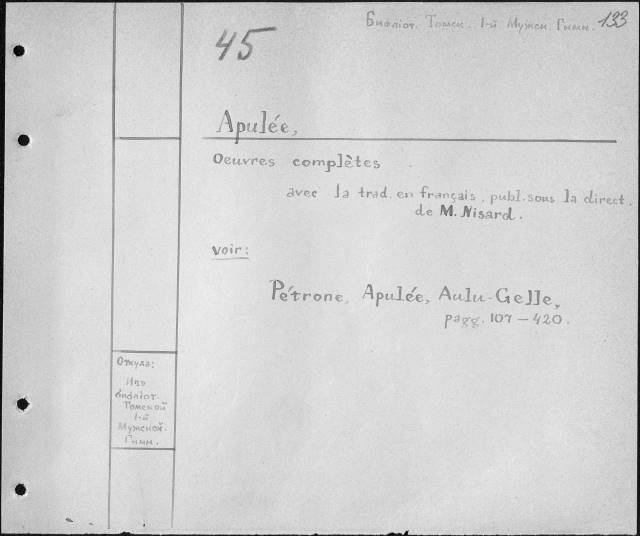 Библіот. Томск. 1-й Мужск. Гимн. 133
45
Apulée,
Oeuvres complètes
avec la trad. en français, publ. sous la direct.
de M. Nisard.
voir:
Pétrone, Apulée, Aulu-Gelle,
pagg. 107 – 420.
Откуда:
Изъ
библіот.
Томской
1-й
Мужской
Гимн.